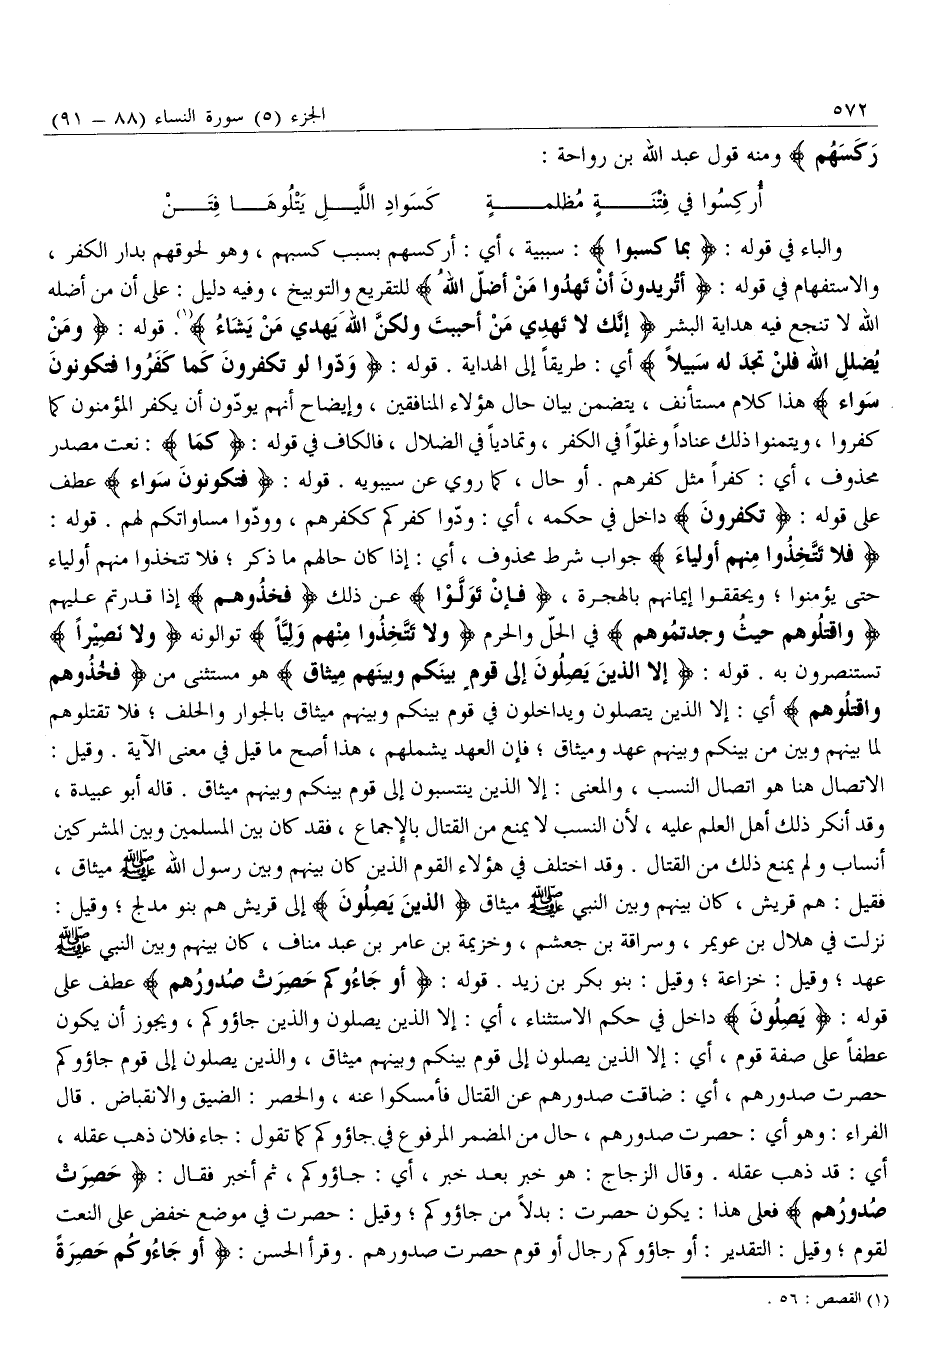 ٥٧٢
الجزء (٥) سورة النساء (٨٨ – ٩١)
رَكَسَهُم ﴾ ومنه قول عبد الله بن رواحة :
أُركِسُوا في فِتْنَـــــةٍ مُظلمـــــةٍ كَسَوادِ اللَّيـــلِ يَتْلُوهَـــا فِتَـــنْ
والباء في قوله : ﴿ بما كسبوا ﴾ : سببية ، أي : أركسهم بسبب كسبهم ، وهو لحوقهم بدار الكفر ،
والاستفهام في قوله : ﴿ أتُريدونَ أنْ تَهدُوا مَنْ أضلّ اللهُ ﴾ للتقريع والتوبيخ ، وفيه دليل : على أن من أضله
الله لا تنجع فيه هداية البشر ﴿ إنَّك لا تَهدِي مَنْ أحببتَ ولكنَّ اللهَ يَهدي مَنْ يَشَاءُ ﴾(١). قوله : ﴿ ومَنْ
يُضللِ الله فلنْ تجدَ له سَبيلاً ﴾ أي : طريقاً إلى الهداية . قوله : ﴿ وَدّوا لو تكفرونَ كَما كَفَرُوا فتكونونَ
سَواء ﴾ هذا كلام مستأنف ، يتضمن بيان حال هؤلاء المنافقين ، وإيضاح أنهم يودّون أن يكفر المؤمنون كما
كفروا ، ويتمنوا ذلك عناداً وغلوّاً في الكفر ، وتمادياً في الضلال ، فالكاف في قوله : ﴿ كمَا ﴾ : نعت مصدر
محذوف ، أي : كفراً مثل كفرهم . أو حال ، كما روي عن سيبويه . قوله : ﴿ فتكونونَ سَواء ﴾ عطف
على قوله : ﴿ تكفرونَ ﴾ داخل في حكمه ، أي : ودّوا كفركم ككفرهم ، وودّوا مساواتكم لهم . قوله :
﴿ فلا تَتَّخِذُوا مِنهم أولياءَ ﴾ جواب شرط محذوف ، أي : إذا كان حالهم ما ذكر ؛ فلا تتخذوا منهم أولياء
حتى يؤمنوا ؛ ويحققـوا إيمانهم بالهجـرة ، ﴿ فـإنْ تَوَلَّـوْا ﴾ عـن ذلك ﴿ فخذُوهـم ﴾ إذا قـدرتم عليهم
﴿ واقتلُوهم حيثُ وجدتمُوهم ﴾ في الحلّ والحرم ﴿ ولا تَتَّخِذُوا مِنْهم وَلِيَّاً ﴾ توالونه ﴿ ولا نَصِيْراً ﴾
تستنصرون به . قوله : ﴿ إلا الذينَ يَصِلُونَ إلى قومٍ بينَكم وبينَهم مِيثاق ﴾ هو مستثنى من ﴿ فخُذُوهم
واقتلُوهم ﴾ أي : إلا الذين يتصلون ويداخلون في قوم بينكم وبينهم ميثاق بالجوار والحلف ؛ فلا تقتلوهم
لما بينهم وبين من بينكم وبينهم عهد وميثاق ؛ فإن العهد يشملهم ، هذا أصح ما قيل في معنى الآية . وقيل :
الاتصال هنا هو اتصال النسب ، والمعنى : إلا الذين ينتسبون إلى قوم بينكم وبينهم ميثاق . قاله أبو عبيدة ،
وقد أنكر ذلك أهل العلم عليه ، لأن النسب لا يمنع من القتال بالإجماع ، فقد كان بين المسلمين وبين المشركين
أنساب و لم يمنع ذلك من القتال . وقد اختلف في هؤلاء القوم الذين كان بينهم وبين رسول الله ﷺ ميثاق ،
فقيل : هم قريش ، كان بينهم وبين النبي ﷺ ميثاق ﴿ الذينَ يَصِلُونَ ﴾ إلى قريش هم بنو مدلج ؛ وقيل :
نزلت في هلال بن عويمر ، وسراقة بن جعشم ، وخزيمة بن عامر بن عبد مناف ، كان بينهم وبين النبي ﷺ
عهد ؛ وقيل : خزاعة ؛ وقيل : بنو بكر بن زيد . قوله : ﴿ أو جَاءُوكم حَصِرَتْ صُدورُهم ﴾ عطف على
قوله : ﴿ يَصِلُونَ ﴾ داخل في حكم الاستثناء ، أي : إلا الذين يصلون والذين جاؤوكم ، ويجوز أن يكون
عطفاً على صفة قوم ، أي : إلا الذين يصلون إلى قوم بينكم وبينهم ميثاق ، والذين يصلون إلى قوم جاؤوكم
حصرت صدورهم ، أي : ضاقت صدورهم عن القتال فأمسكوا عنه ، والحصر : الضيق والانقباض . قال
الفراء : وهو أي : حصرت صدورهم ، حال من المضمر المرفوع في جاؤوكم كما تقول : جاء فلان ذهب عقله ،
أي : قد ذهب عقله . وقال الزجاج : هو خبر بعـد خبر ، أي : جـاؤوكم ، ثم أخبر فقـال : ﴿ حَصِرَتْ
صُدورُهم ﴾ فعلى هذا : يكون حصرت : بدلاً من جاؤوكم ؛ وقيل : حصرت في موضع خفض على النعت
لقوم ؛ وقيل : التقدير : أو جاؤوكم رجال أو قوم حصرت صدورهم . وقرأ الحسن : ﴿ أو جَاءُوكُم حَصِرَةً
(١) القصص : ٥٦ .